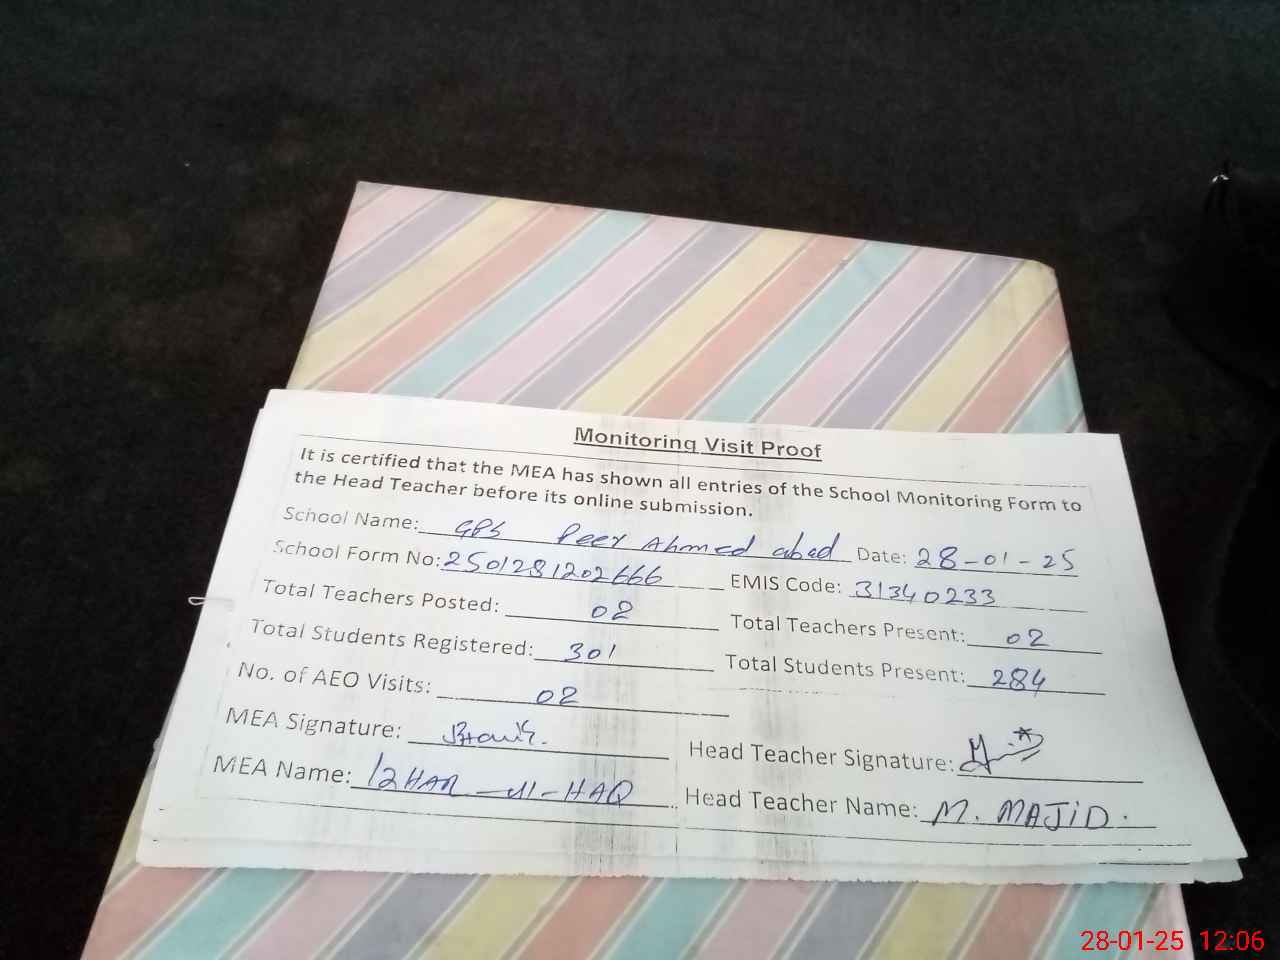 Monitoring Visit Proof
It is certified that the MEA has shown all entries of the School Monitoring Form to
the Head Teacher before its online submission.
School Name: GPS Peer Ahmed abad Date: 28-01-25
School Form No: 2501281202666 EMIS Code: 31340233
Total Teachers Posted: 02 Total Teachers Present: 02
Total Students Registered: 301 Total Students Present: 284
No. of AEO Visits: 02
MEA Signature: Head Teacher Signature:
MEA Name: IZHAR-ul-HAQ Head Teacher Name: M. MAJID.
28-01-25 12:06